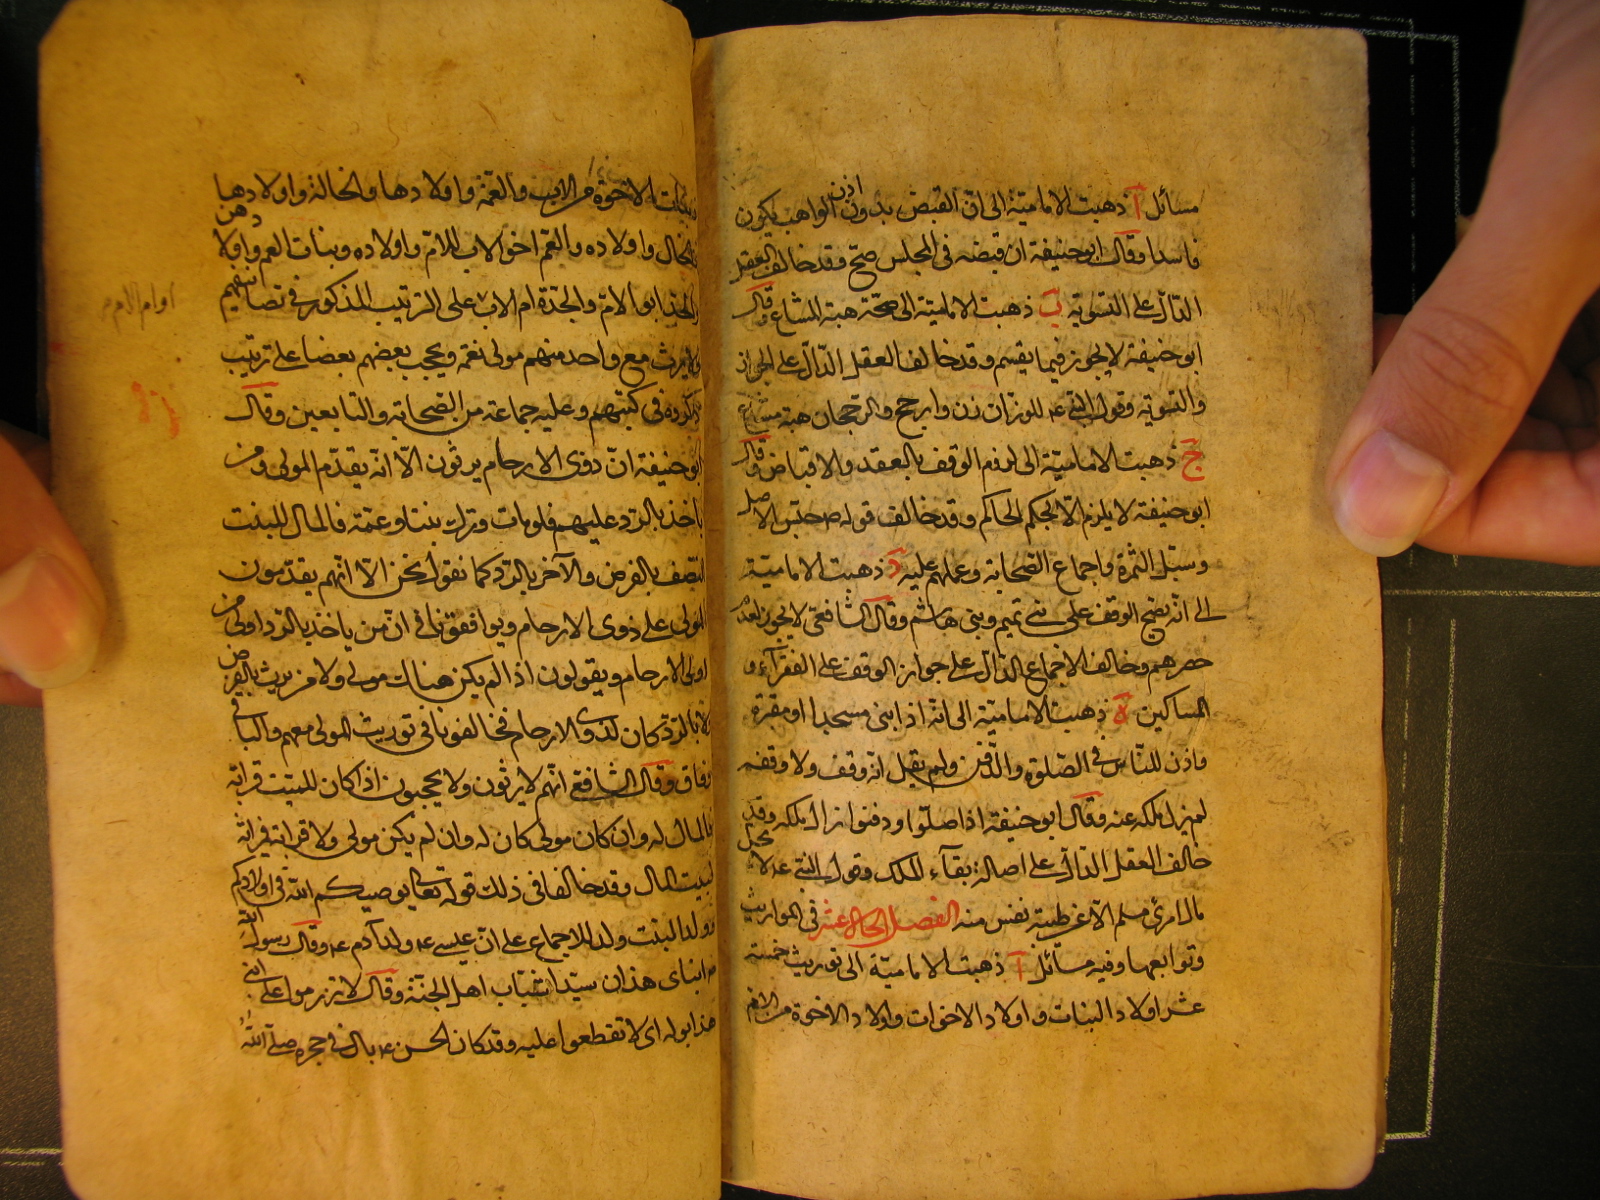 مسائل آ ذهبت الامامية الى ان القبض بدون اذن الواهب يكون
فاسدا وقال ابو حنيفة ان قبضه في المجلس صح وقد خالف العقل
الدال على التسوية ب ذهبت الامامية الى صحة هبة المشاع وقال
ابو حنيفة لا يجوز فيما يقسم وقد خالف العقل الدال على الجواز
والتسوية وقول النبي ع للوزان زن وارجح والرجحان هبة مشاع
ج ذهبت الامامية الى لزوم الوقف بالعقد والاقباض وقال
ابو حنيفة لا يلزم الا بحكم الحاكم وقد خالف قوله ص حبس الاصل
وسبل الثمرة واجماع الصحابة وعملهم عليه د ذهبت الامامية
الى انه يصح الوقف على بني تميم وبني هاشم وقال الشافعي لا يجوز لعدم
حصرهم وخالف الاجماع الدال على جواز الوقف على الفقراء و
المساكين ه ذهبت الامامية الى انه اذا بنى مسجدا او مقبرة
واذن للناس في الصلوة والدفن ولم يقل انه وقف ولا وقفه
لم يزل ملكه عنه وقال ابو حنيفة اذا صلوا ودفنوا زال ملكه وقد
خالف العقل الدال على اصالة بقاء الملك وقول النبي ع لا يحل
مال امرئ مسلم الا عن طيبة نفس منه الفصل الحادي عشر في المواريث
وتوابعها وفيه مسائل آ ذهبت الامامية الى توريث خمسة
عشر اولاد البنات واولاد الاخوات واولاد الاخوة من الام
وبنات الاخوة من الاب والعمة واولادها والخالة واولادها
والخال واولاده والعم اخو الاب للام واولاده وبنات العم واولادهن
والجد ابو الام والجدة ام الاب على الترتيب المذكور في تصانيفهم
ولا يرث مع واحد منهم مولى نعمة ويحجب بعضهم بعضا على ترتيب
ذكروه في كتبهم وعليه جماعة من الصحابة والتابعين وقال
ابو حنيفة ان ذوي الارحام يرثون الا انه يقدم المولى ومن
ياخذ بالرد عليهم فلو مات وترك بنتا وعمة فالمال للبنت
النصف بالفرض والآخر بالرد كما نقول نحن الا انهم يقدمون
المولى على ذوي الارحام ويوافقوننا في ان من ياخذ بالرد اولى من
اولي الارحام ويقولون اذا لم يكن هناك مولى ولا من يرث بالفرض
ولا بالرد كان لذوي الارحام فخالفونا في توريث المولى معهم والباقي
وفاق وقال الشافعي انهم لا يرثون ولا يحجبون اذا كان للميت قرابة
فالمال له وان كان مولى كان له وان لم يكن مولى ولا قرابة فميراثه
لبيت المال وقد خالفا في ذلك قوله تعالى يوصيكم الله في اولادكم
وولد البنت ولد للاجماع على ان عيسى ع ولد آدم ع وقال رسول الله
ص ابناي هذان سيدا شباب اهل الجنة وقال لا تزرموا على ابني
هذا بوله اي لا تقطعوا عليه وقد كان الحسن ع بال في حجره صلى الله